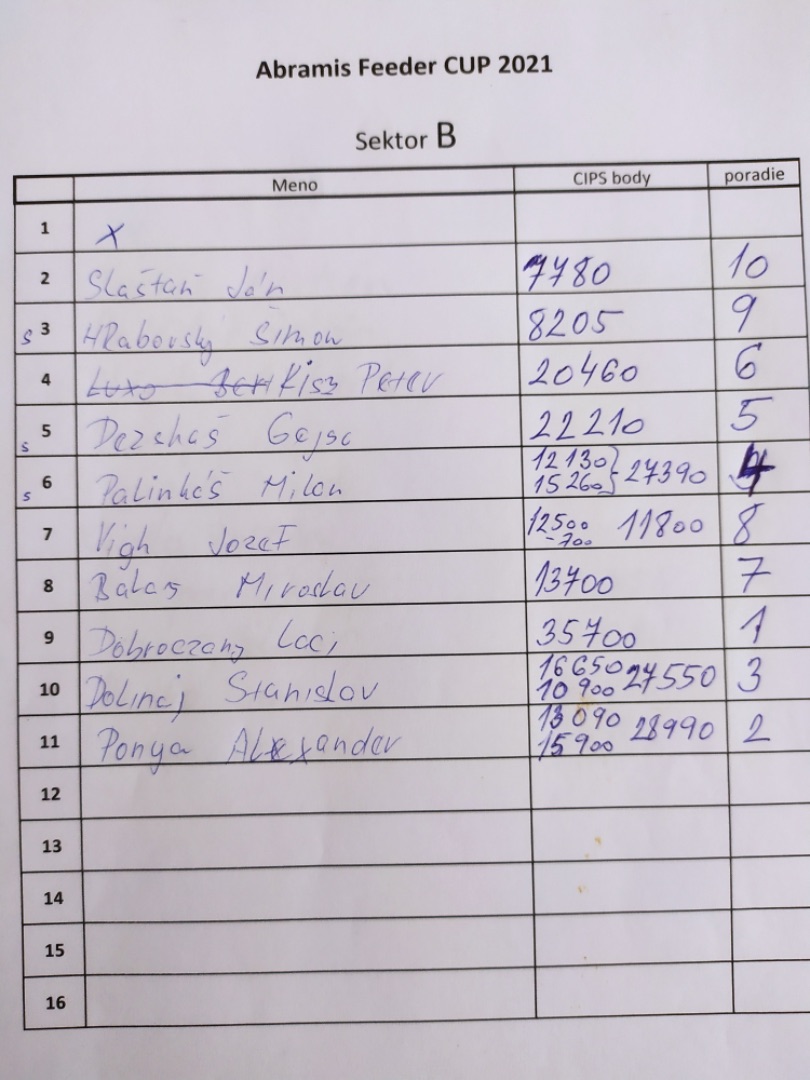 Abramis Feeder CUP 2021
Sektor B
Meno CIPS body poradie
1 X
2 Slaštan Ján 7780 10
s 3 HRabovský Šimon 8205 9
4 Kisz Peter 20460 6
s 5 Gejza 22210 5
s 6 Palinkáš Milan 12130 } 27390 4
15260
7 Vigh Jozef 12500 11800 8
-700
8 Balas Miroslav 13700 7
9 Dobroczany Laci 35700 1
10 Dolinaj Stanislav 16650 27550 3
10900
11 Ponya Alexander 13090 28990 2
15900
12
13
14
15
16